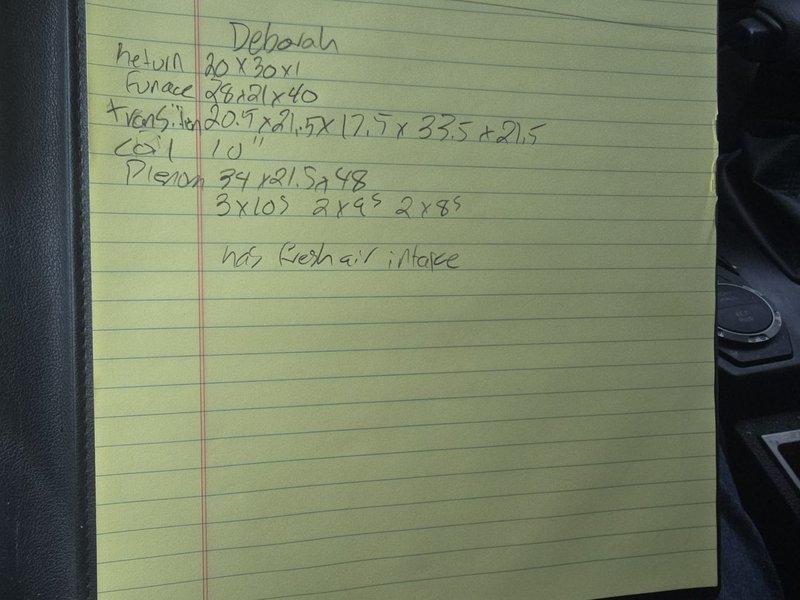 Deborah
Return 20x30x1
Furnace 28x21x40
transition 20.5x21.5x17.5x 33.5 x21.5
Coil 10"
Plenom 34 x21.5x48
3x10s 2x9s 2x8s
has fresh air intake